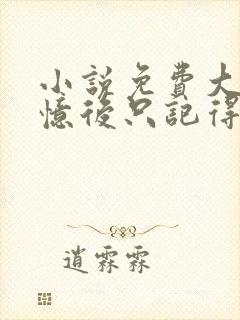 小説免費大
憶後只記得
逍霖霖